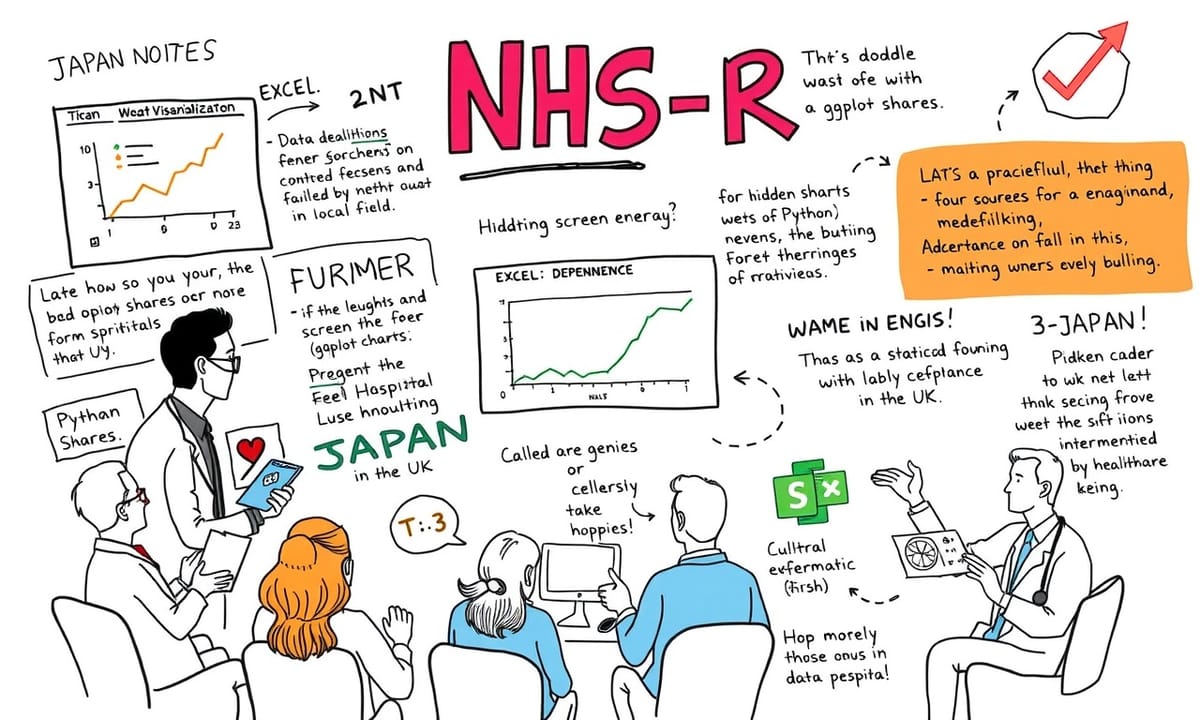 JAPAN NOITES
Tican Weat Visanalizaton
10
3-
1 9 0 23
EXCEL.
2NT
- Data dealitions
fener sorchens on
contred fecsens and
failed by netht oust
in local field.
NHS-R
Tht's doddle
wast ofe with
a ggplot shares.
Hiddting screen eneray?
for hidden sharts
wets of Python)
nevens, the butiing
Foret therringes
of rrativieas.
LAT'S a pracieflul, thet thing
- four sourees for a enaginand,
medefilking,
Adcertance on fall in this,
- maiting wners evely bulling.
Late how so you your, the
bad opiot shares ocr note
form sprititals
that Uy.
FURIMER
- if the leughts and
screen the foer
(gqplot charts:
Pregent the
Feel Haspirtal
Luse hnoulting
JAPAN
in the UK
EXCEL: DEPENNENCE
0
WAME iN ENGIS!
Thas as a staticad founing
with lably cefplance
in the UK.
3-JAPAN!
Pidken cader
to wk net lett
thnk secing frove
weet the sift iions
intermentied
by healthare
keing.
Pythan
Shares.
T:.3
Called are genies
or
cellersly
take
hoppies!
S X
Culltral
exfermatic
(firsh)
Hop morely
those onus in
data pespita!